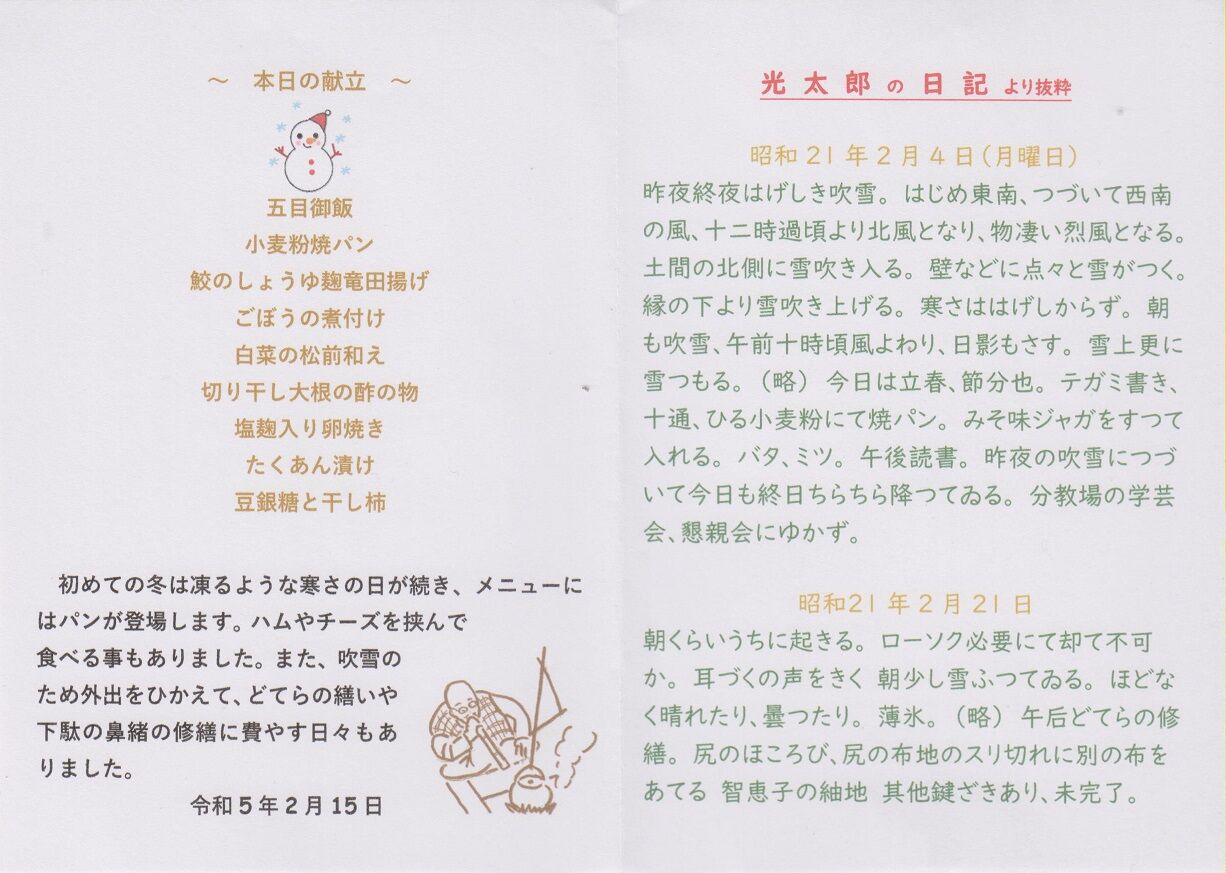 ～　本日の献立　～
五目御飯
小麦粉焼パン
鮫のしょうゆ麹竜田揚げ
ごぼうの煮付け
白菜の松前和え
切り干し大根の酢の物
塩麹入り卵焼き
たくあん漬け
豆銀糖と干し柿
初めての冬は凍るような寒さの日が続き、メニューに
はパンが登場します。ハムやチーズを挟んで
食べる事もありました。また、吹雪の
ため外出をひかえて、どてらの繕いや
下駄の鼻緒の修繕に費やす日々もあ
りました。
令和5年2月15日
光太郎の日記より抜粋
昭和21年2月4日(月曜日)
昨夜終夜はげしき吹雪。はじめ東南、つづいて西南
の風、十二時過頃より北風となり、物凄い烈風となる。
土間の北側に雪吹き入る。壁などに点々と雪がつく。
縁の下より雪吹き上げる。寒さははげしからず。朝
も吹雪、午前十時頃風よわり、日影もさす。雪上更に
雪つもる。（略）今日は立春、節分也。テガミ書き、
十通、ひる小麦粉にて焼パン。みそ味ジャガをすつて
入れる。バタ、ミツ。午後読書。昨夜の吹雪につづ
いて今日も終日ちらちら降つてゐる。分教場の学芸
会、懇親会にゆかず。
昭和21年2月21日
朝くらいうちに起きる。ローソク必要にて却て不可
か。耳づくの声をきく 朝少し雪ふつてゐる。ほどな
く晴れたり、曇つたり。薄氷。（略）午后どてらの修
繕。尻のほころび、尻の布地のスリ切れに別の布を
あてる 智恵子の紬地 其他鍵ざきあり、未完了。